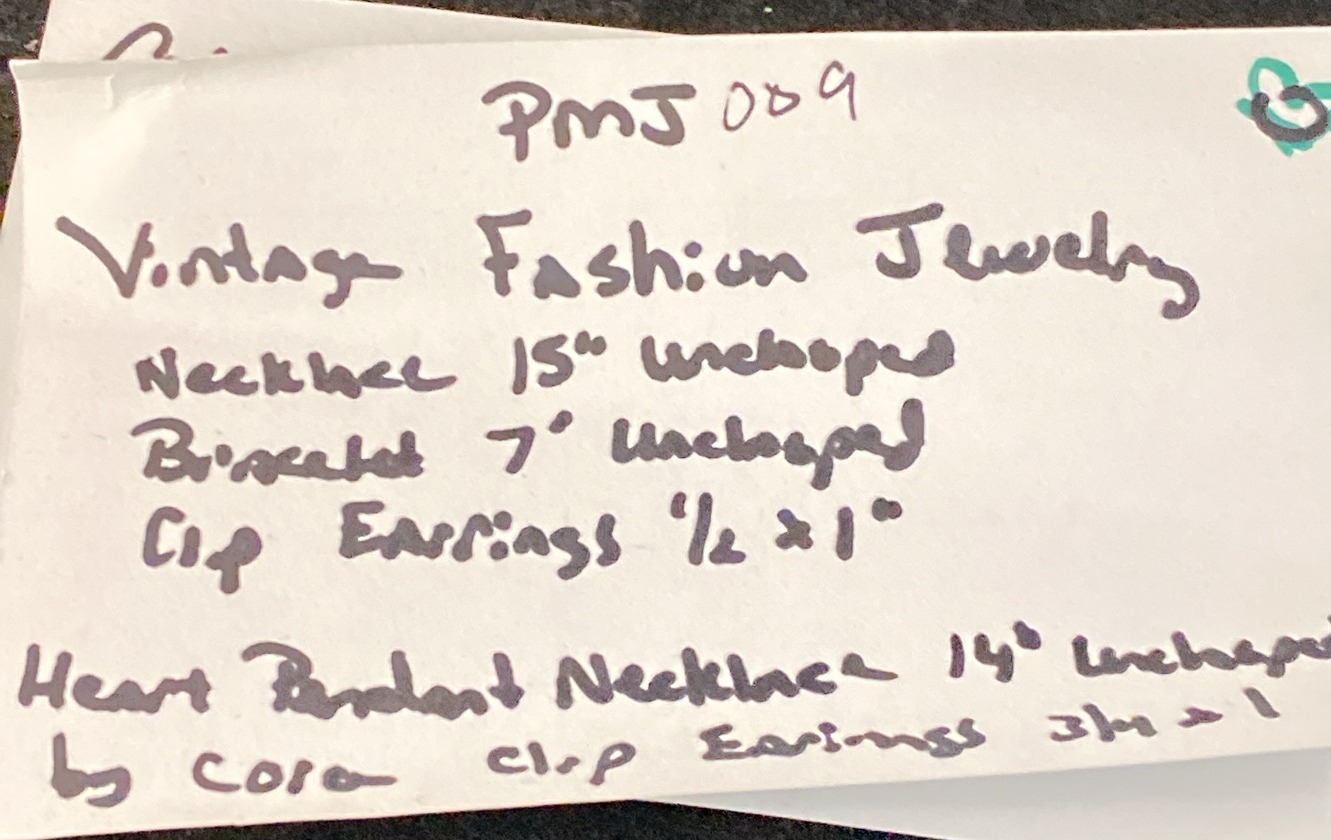 PMJ 009
Vintage Fashion Jewelry
Necklace 15" Unclasped
Bracelet 7" Unclasped
Clip Earrings 1/2 x 1"
Heart Pendant Necklace 14" Unclasped
by Cora Clip Earrings 3/4 x 1